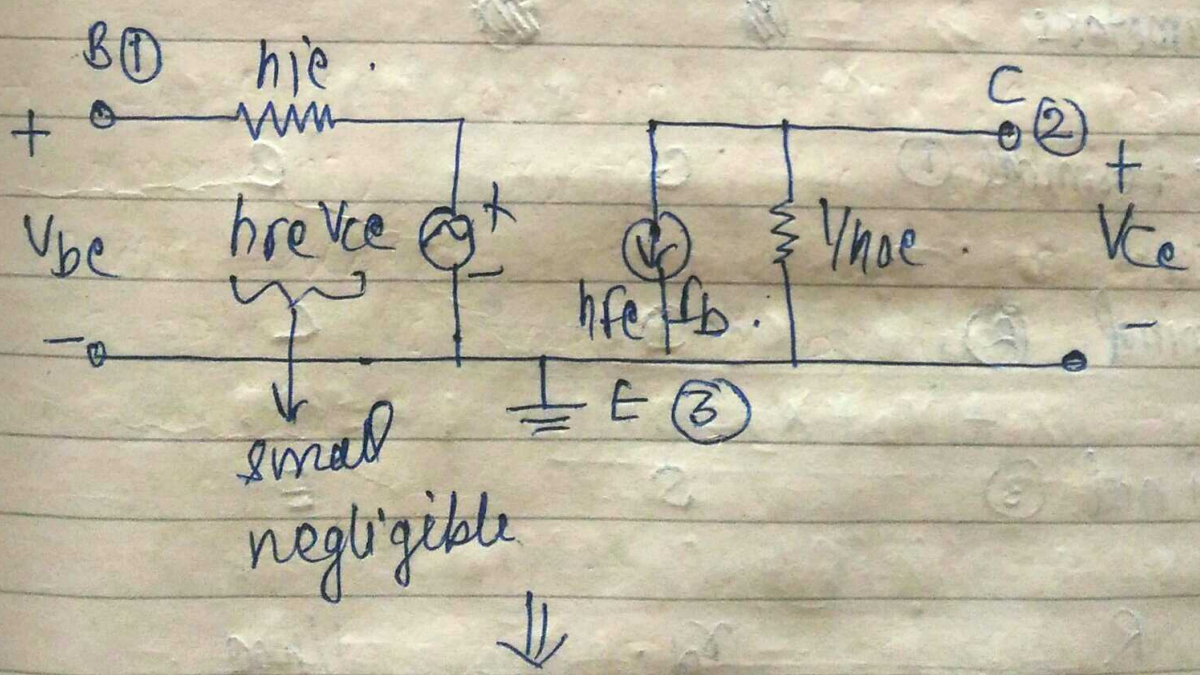 B ①
hie
C ②
+
+
Vbe
hre Vce
+
-
1/hoe
Vce
hfe Ib
-
-
E ③
small
negligible